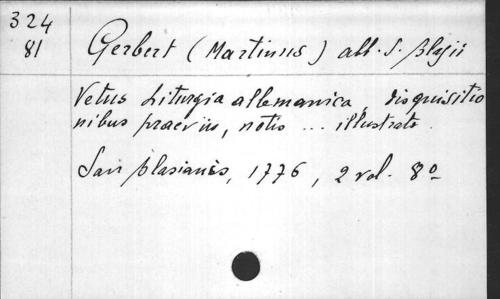 324
81
Gerbert (Martinus) abb. S. Blasii
Vetus Liturgia allemanica, disquisitio
nibus praeviis, notis ... illustrata.
San Blasianis, 1776, 2 vol. 8º